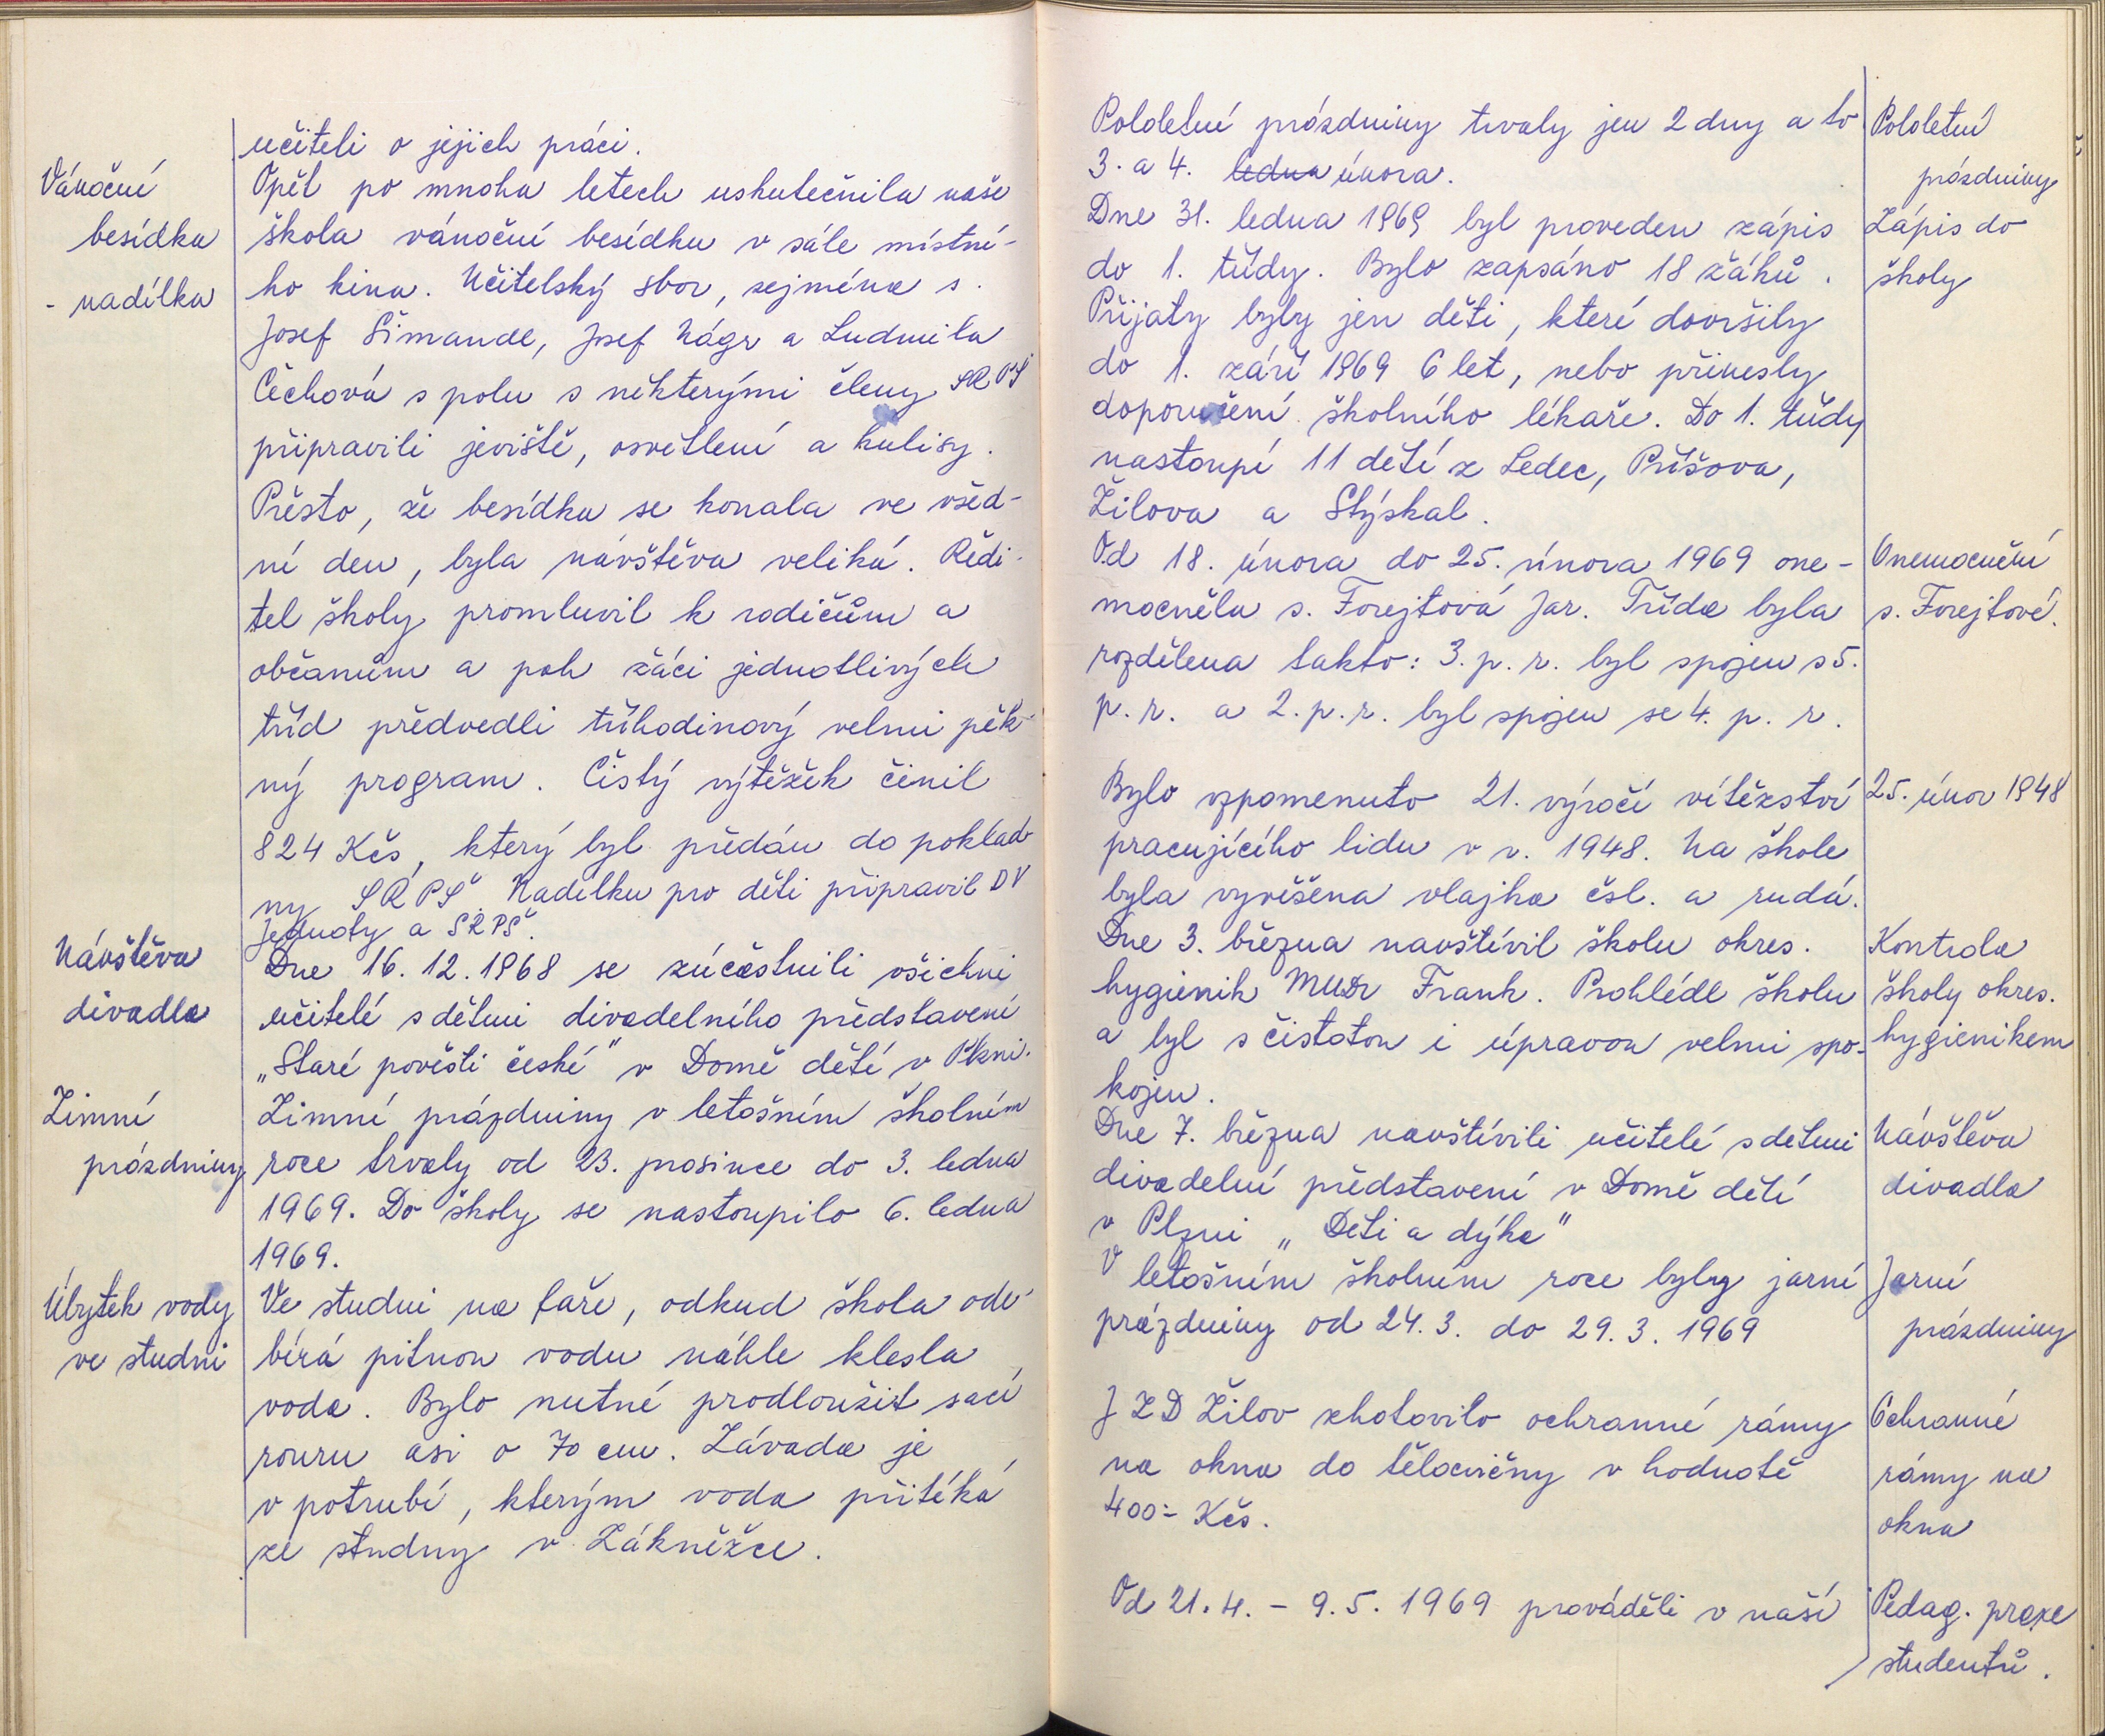 učiteli o jejich práci.
Vánoční
besídka
- nadílka
Opět po mnoha letech uskutečnila naše
škola vánoční besídku v sále místní-
ho kina. Učitelský sbor, zejména s.
Josef Šimandl, Josef Nágr a Ludmila
Čechová spolu s některými členy SRPŠ
připravili jeviště, osvětlení a kulisy.
Přesto, že besídka se konala ve všed-
ní den, byla návštěva veliká. Ředi-
tel školy promluvil k rodičům a
občanům a pak žáci jednotlivých
tříd předvedli tříhodinový velmi pěk-
ný program. Čistý výtěžek činil
824 Kčs, který byl předán do poklad-
ny SRPŠ. Nadílku pro děti připravil DV
Jednoty a SRPŠ.
Návštěva
divadla
Dne 16. 12. 1968 se zúčastnili všichni
učitelé s dětmi divadelního představení
„Staré pověsti české" v Domě dětí v Plzni.
Zimní
prázdniny
Zimní prázdniny v letošním školním
roce trvaly od 23. prosince do 3. ledna
1969. Do školy se nastoupilo 6. ledna
1969.
Úbytek vody
ve studni
Ve studni na faře, odkud škola ode-
bírá pitnou vodu náhle klesla
voda. Bylo nutné prodloužit sací
rouru asi o 70 cm. Závada je
v potrubí, kterým voda přitéká
ze studny v Zákněžce.
Pololetní prázdniny trvaly jen 2 dny a to
3. a 4. ledna února.
Pololetní
prázdniny
Dne 31. ledna 1969 byl proveden zápis
do 1. třídy. Bylo zapsáno 18 žáků.
Přijaty byly jen děti, které dovršily
do 1. září 1969 6 let, nebo přinesly
doporučení školního lékaře. Do 1. třídy
nastoupí 11 dětí z Ledec, Příšova,
Žilova a Stýskal.
Zápis do
školy
Od 18. února do 25. února 1969 one-
mocněla s. Forejtová Jar. Třída byla
rozdělena takto: 3. p. r. byl spojen s 5.
p. r. a 2. p. r. byl spojen se 4. p. r.
Onemocnění
s. Forejtové.
Bylo vzpomenuto 21. výročí vítězství
pracujícího lidu v r. 1948. Na škole
byla vyvěšena vlajka čsl. a rudá.
25. únor 1948
Dne 3. března navštívil školu okres.
hygienik MUDr Frank. Prohlédl školu
a byl s čistotou i úpravou velmi spo-
kojen.
Kontrola
školy okres.
hygienikem
Dne 7. března navštívili učitelé s dětmi
divadelní představení v Domě dětí
v Plzni „Děti a dýka"
Návštěva
divadla
V letošním školním roce byly jarní
prázdniny od 24. 3. do 29. 3. 1969
Jarní
prázdniny
JZD Žilov zhotovilo ochranné rámy
na okna do tělocvičny v hodnotě
400:- Kčs.
Ochranné
rámy na
okna
Od 21. 4. - 9. 5. 1969 prováděli v naší
Pedag. praxe
studentů.